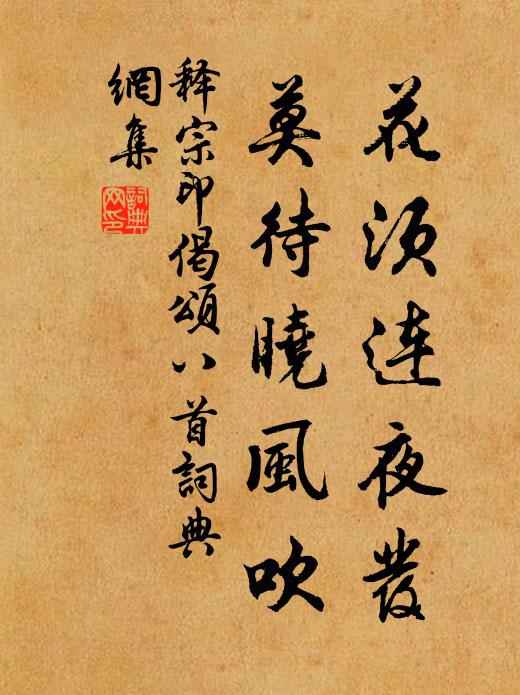 花须连夜發
莫待曉風吹
释宗印偈頌八首詞典
網集
詞典網印